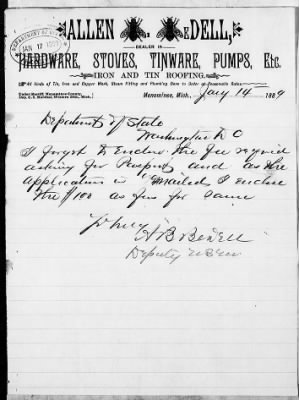 ALLEN BEDELL,
DEALER IN
HARDWARE, STOVES, TINWARE, PUMPS, Etc.
IRON AND TIN ROOFING.
All kinds of Tin, Iron and Copper Work, Steam Fitting and Plumbing Done to Order at Reasonable Rates.
JAN 17 1889
Menominee, Mich., Jany 14 1889
Department of State
Washington D C
I forgot to Enclose the fee required
asking for Passport and as the
application is mailed I enclose
the $1 00 as fees for same
A B Bedell
Deputy